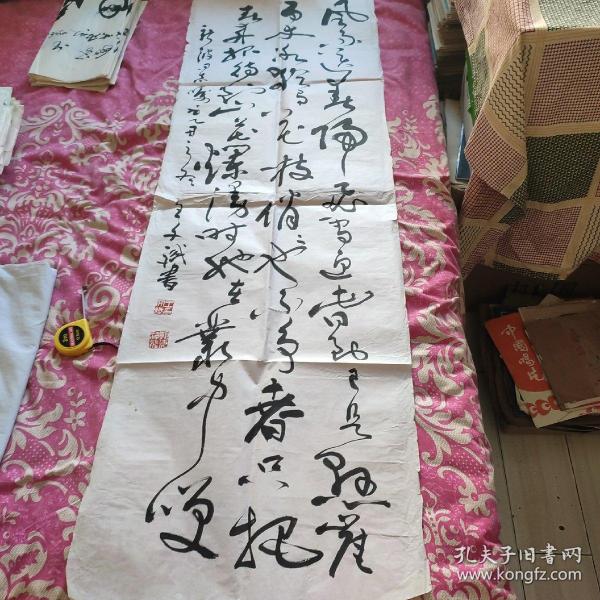 风雨送春归飞雪迎春到已是悬崖
百丈冰犹有花枝俏々也不争春只把
春来报待到山花烂漫时她在叢中笑
同志嘱
诚书
中国唱片
孔夫子旧书网
www.kongfz.com